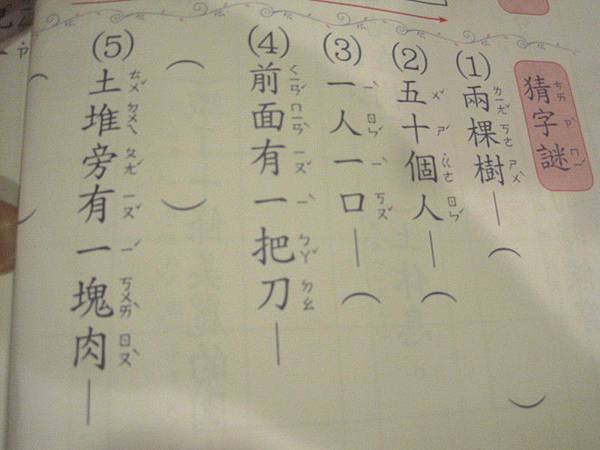 猜字謎
(1)兩棵樹—( )
(2)五十個人—(
(3)一人一口—(
(4)前面有一把刀—
( )
(5)土堆旁有一塊肉—